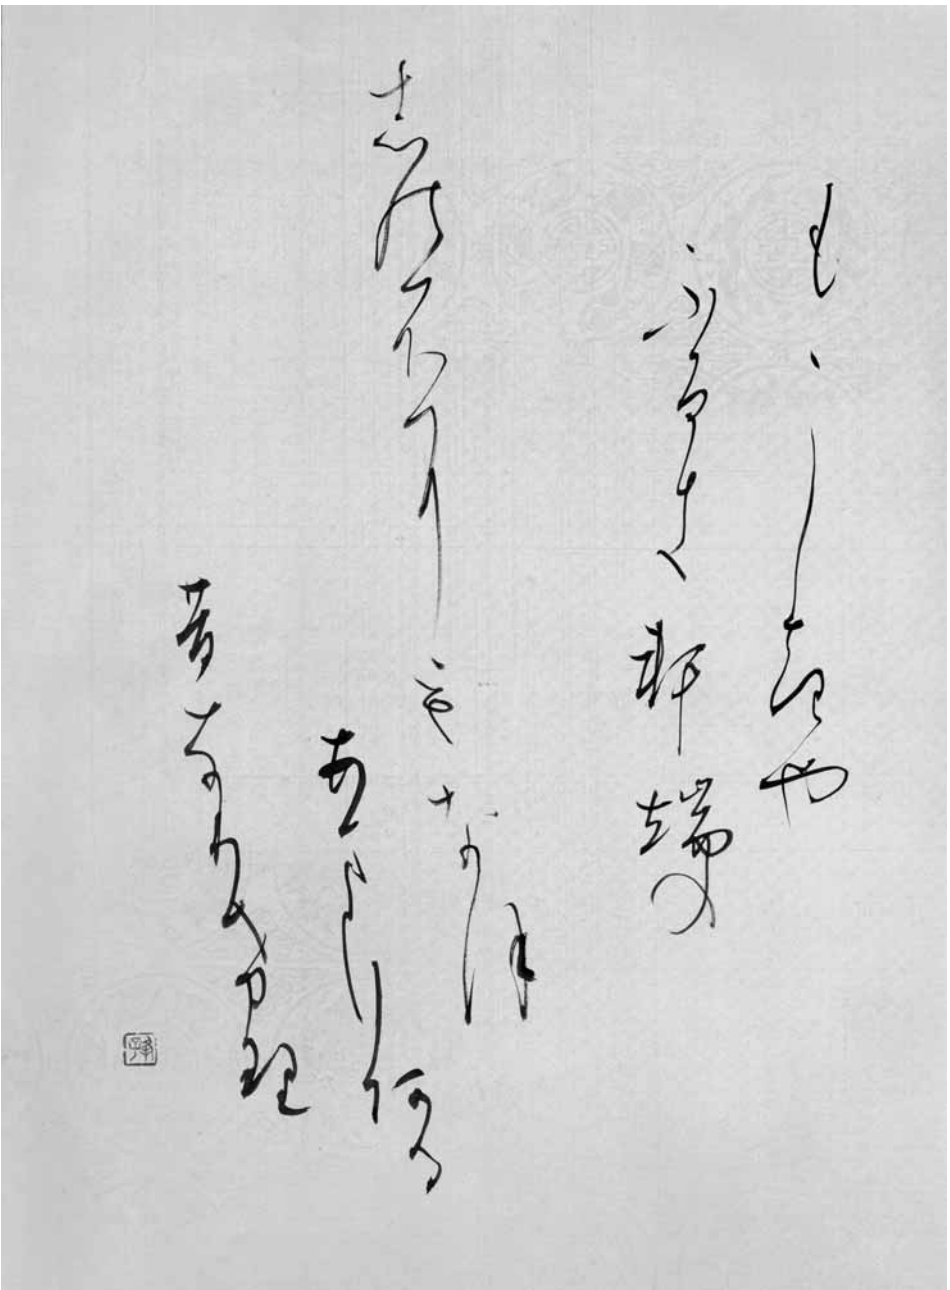 もゝし起や
ふるき軒端の
志のふにもなほ
あまり阿る
昔なりけ理